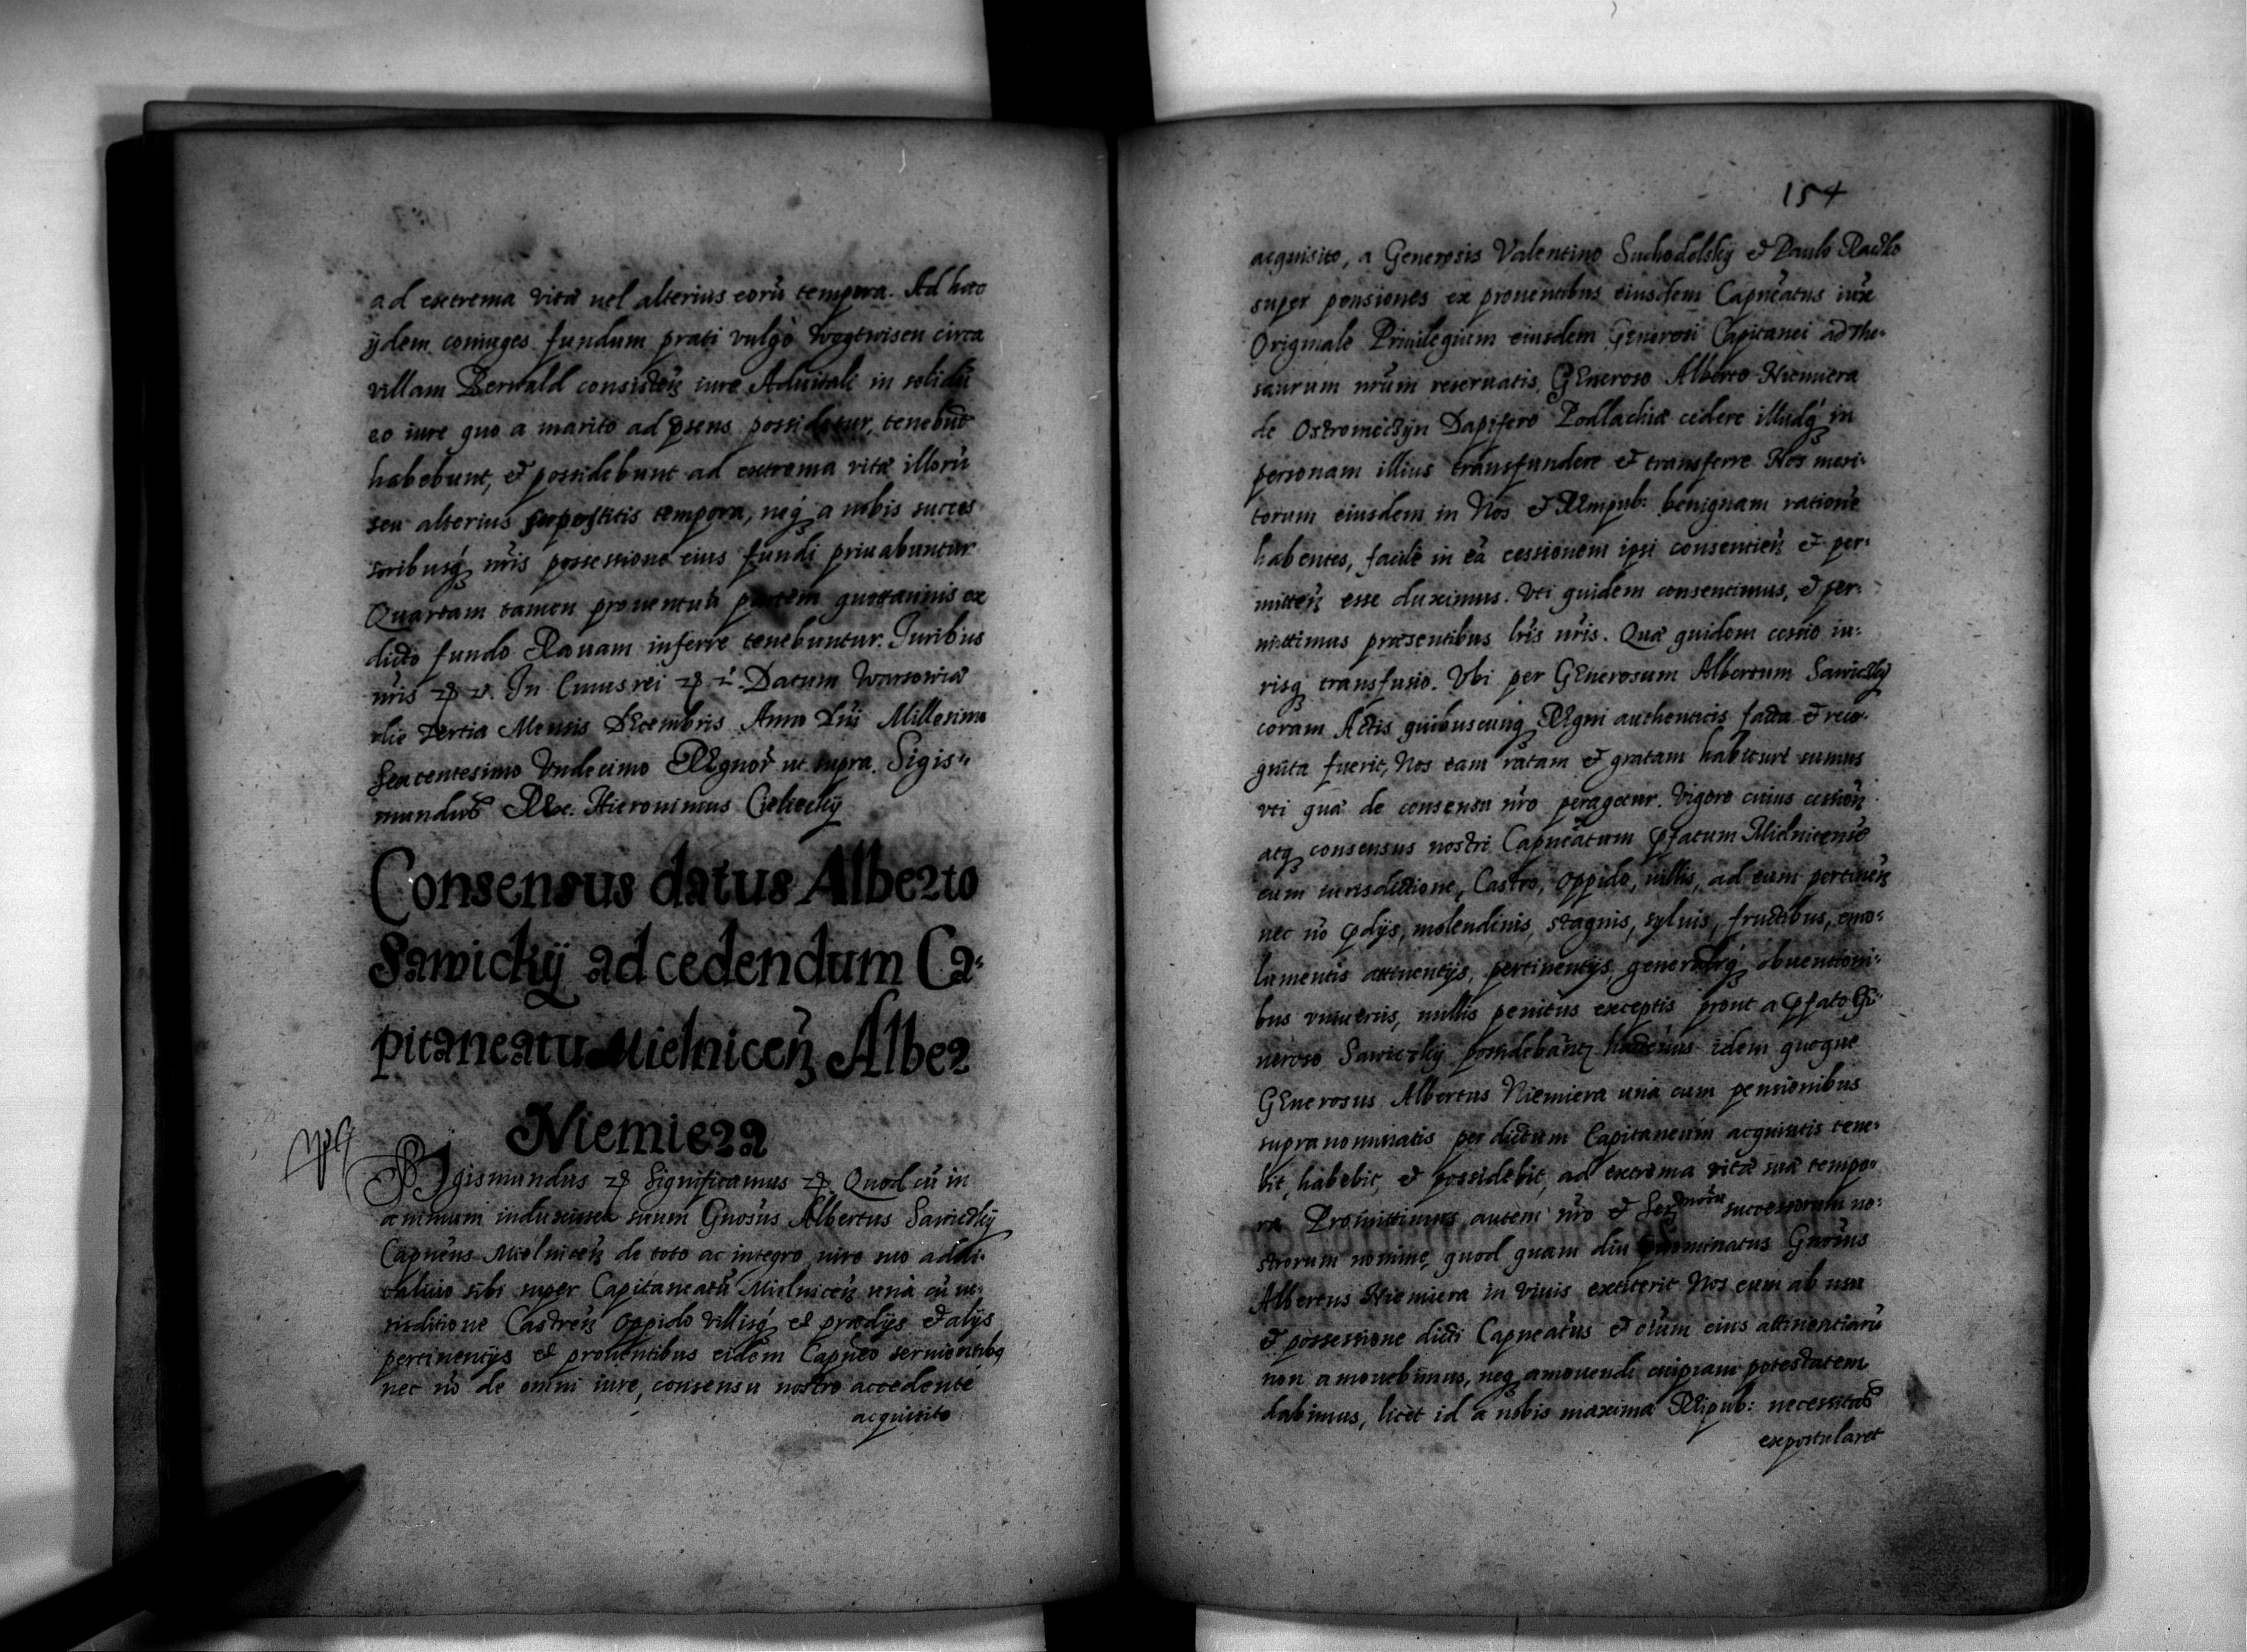 ad extrema vitæ uel alterius eorū tempora. Ad hæc
ijdem coniuges fundum prati vulgò Wogtwisen circa
villam Berwald consisteñ iure Aduitali in solidū
eo iure quo a marito ad p̄sens possidetur, tenebūt
habebunt, et possidebunt ad extrema vitæ illorū
seu alterius superstitis tempora, neq́ a nobis succes
soribusq́ nr̄is possessione eius fundi priuabuntur
Quartam tamen prouentuū partem quottannis ex
dicto fundo Rauam inferre tenebuntur. Juribus
nr̄is In Cuius rei Datum Warsowiæ
die Tertia Mensis Decembris Anno Dn̄i Millesimo
Sexcentesimo Vndecimo Regnor̄ ut supra. Sigis"
mundus Rex. Hieronimus Cielecky
Consensus datus Alberto
Sawickij ad cedendum Ca-
pitaneatu Mielniceñ Alber
Niemiera
Sigismundus Significamus Quod cū in
animum induxisset suum Gn̄osus Albertus Sawiczkij
Capn̄eus Mielniceñ de toto ac integro iure suo aduita-
talitio sibi super Capitaneatū Mielniceñ unà cū iu-
risditione Castreñ oppido villisq́ et prædijs et alijs
pertinentijs et prouentibus eidem Capn̄eo seruientibq
nec nō de omni iure, consensu nostro accedente
acquisito
154
acquisito, a Generosis Valentino Suchodolskij et Paulo Raczko
super pensiones ex prouentibus eiusdem Capn̄eatus iux̄
Originale Priuilegium eiusdem Generosi Capitanei ad The-
saurum nr̄um reseruatis, Generoso Alberto Niemiera
de Ostromęczyn Dapifero Podlachiæ cedere illudq́ in
personam illius transfundere et transferre Nos meri-
torum eiusdem in Nos et Rempub: benignam rationē
habentes, facilè in eā cessionem ipsi consentieñ et per-
mitteñ esse duximus. Vti quidem consentimus, et per-
mittimus præsentibus lr̄is nr̄is. Quæ quidem cessio iu-
risq́ transfusio. Vbi per Generosum Albertum Sawiczkij
coram Actis quibuscunq́ Regni authenticis facta et reco-
gnita fuerit, Nos eam ratam et gratam habituri sumus
vti quæ de consensu nr̄o peragetur. Vigore cuius cessioñ
atq́ consensus nostri Capn̄eatum p̄fatum Mielnicensē
cum iurisdictione, Castro, oppido, villis, ad eum pertineñ
nec nō p̄dijs, molendinis, stagnis, syluis, fructibus, emo-
lumentis attinentijs, pertinentijs, generalibq́ obuentioni-
bus vniuersis, nullis penitus exceptis prout a p̄fato Ge"
neroso Sawiczkij possidebant hactenus idem quoque
Generosus Albertus Niemiera unà cum pensionibus
supranominatis per dictum Capitaneum acquisitis tene-
bit, habebit, et possidebit, ad extrema vitæ suæ tempo"
ra Promittimus autem nr̄o et Ser̄ morū successorum no-
strorum nomine, quod quam diu p̄nominatus Gn̄osus
Albertus Niemiera in viuis extiterit Nos eum ab usu
et possessione dicti Capn̄eatus et oīum eius attinentiarū
non amouebimus, neq́ amouendi cuipiam potestatem
dabimus, licèt id a nobis maxima Reipub: necessitas
expostularet